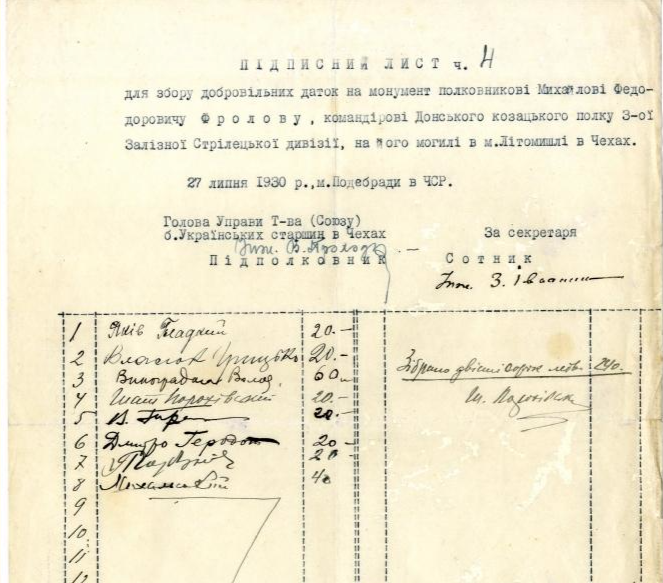 ПІДПИСНИЙ ЛИСТ ч. 4
для збору добровільних даток на монумент полковникові Михайлові Федо-
доровичу Фролову, командірові Донського козацького полку 3-ої
Залізної Стрілецької дивізії, на його могилі в м.Літомишлі в Чехах.
27 липня 1930 р.,м.Подебради в ЧСР.
Голова Управи Т-ва (Союзу)
б.Українських старшин в Чехах
За секретаря
Інж. В.
Підполковник
Сотник
Інж. З. Івасишин
1 Яків Гладкий 20.-
2 20.-
3 Виноградова Волод. 60
4 20.-
5 В. 20.-
6 Дмитро Геродот 20
7 20
8 40
9
10
11
12
Зібрано двісті сорок 240.